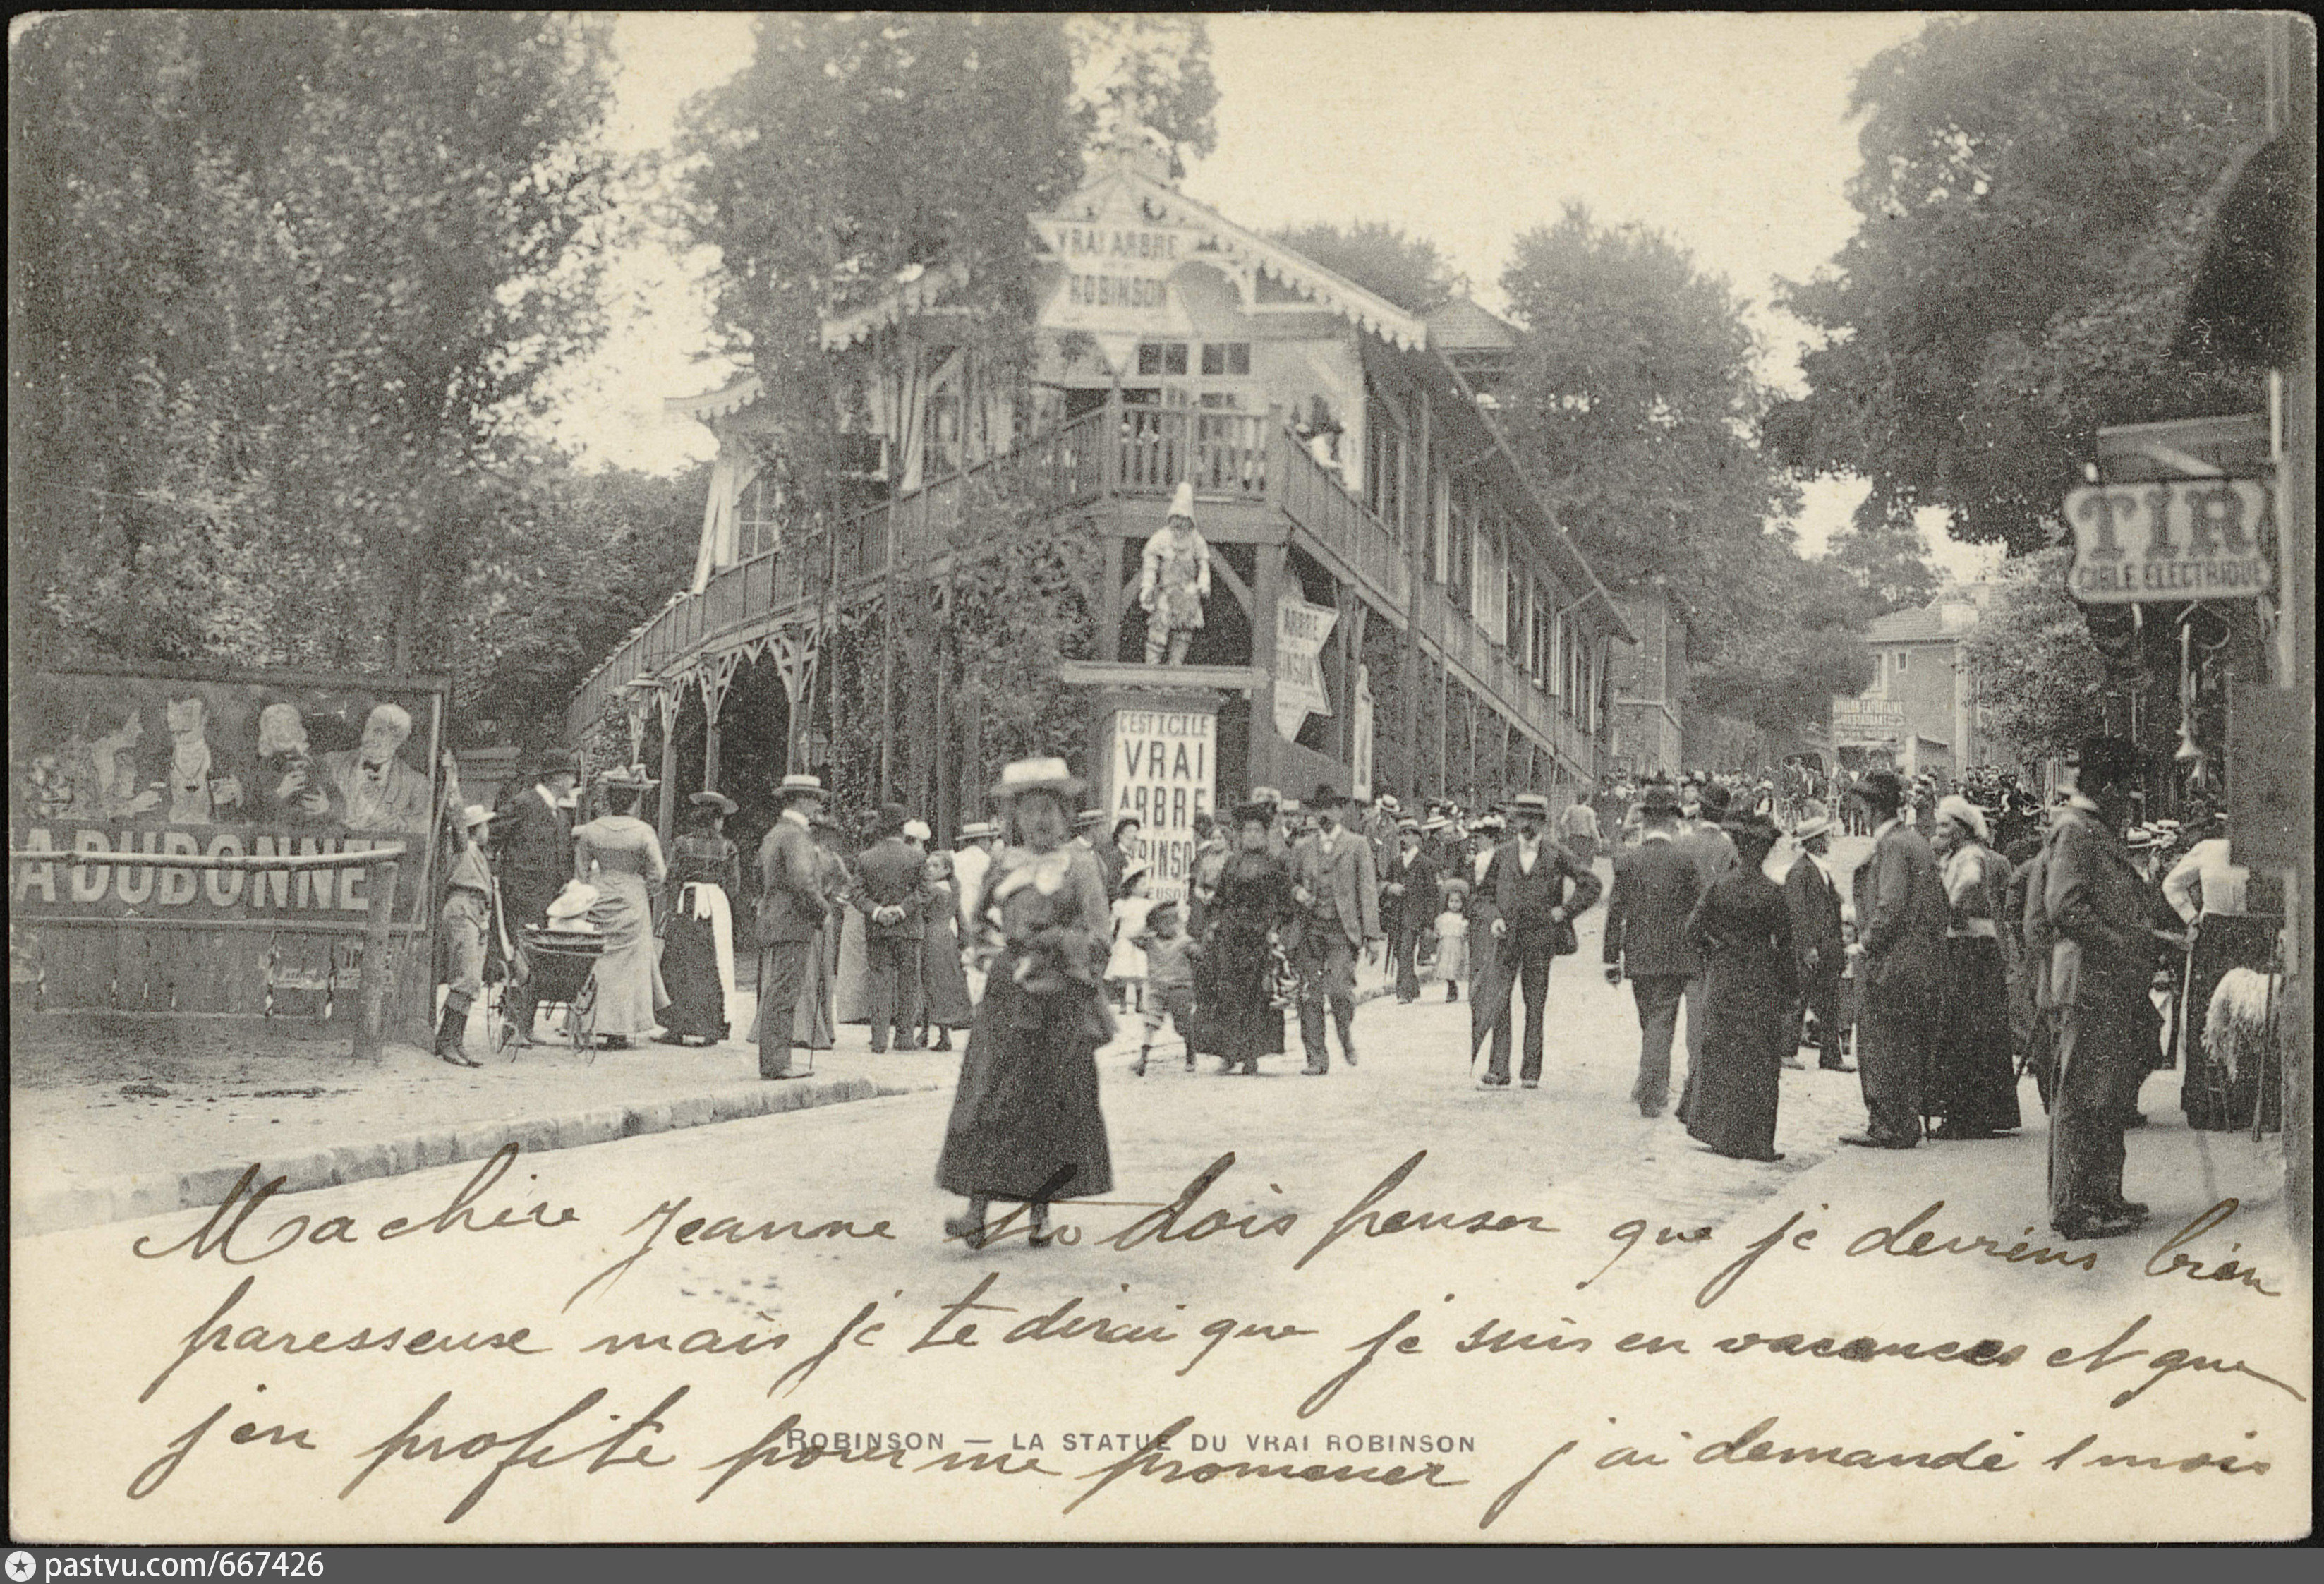 VRAI ARBRE
ROBINSON
TIR
CIBLE ELECTRIQUE
ARBRE
C'EST ICI LE
VRAI
ARBRE
RESTAURANT
A DUBONNE
Ma chère Jeanne tu dois penser que je deviens bien
paresseuse mais je te dirai que je suis en vacances et que
j'en profite pour me promener j'ai demandé 1 mois
ROBINSON — LA STATUE DU VRAI ROBINSON
pastvu.com/667426